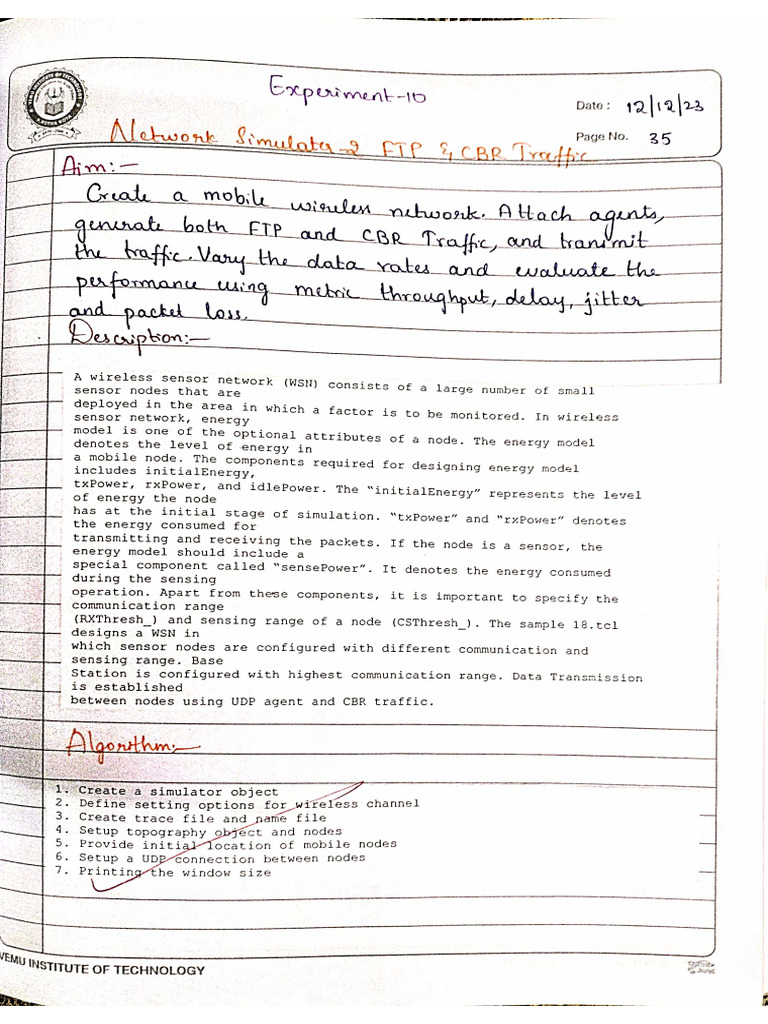 Experiment-10
Date : 12/12/23
Page No. 35
Network Simulator-2 FTP & CBR Traffic
Aim:-
Create a mobile wireless network. Attach agents,
generate both FTP and CBR Traffic, and transmit
the traffic. Vary the data rates and evaluate the
performance using metric throughput, delay, jitter
and packet loss.
Description:-
A wireless sensor network (WSN) consists of a large number of small
sensor nodes that are
deployed in the area in which a factor is to be monitored. In wireless
sensor network, energy
model is one of the optional attributes of a node. The energy model
denotes the level of energy in
a mobile node. The components required for designing energy model
includes initialEnergy,
txPower, rxPower, and idlePower. The “initialEnergy” represents the level
of energy the node
has at the initial stage of simulation. “txPower” and “rxPower” denotes
the energy consumed for
transmitting and receiving the packets. If the node is a sensor, the
energy model should include a
special component called “sensePower”. It denotes the energy consumed
during the sensing
operation. Apart from these components, it is important to specify the
communication range
(RXThresh_) and sensing range of a node (CSThresh_). The sample 18.tcl
designs a WSN in
which sensor nodes are configured with different communication and
sensing range. Base
Station is configured with highest communication range. Data Transmission
is established
between nodes using UDP agent and CBR traffic.
Algorithm:-
1. Create a simulator object
2. Define setting options for wireless channel
3. Create trace file and name file
4. Setup topography object and nodes
5. Provide initial location of mobile nodes
6. Setup a UDP connection between nodes
7. Printing the window size
VEMU INSTITUTE OF TECHNOLOGY